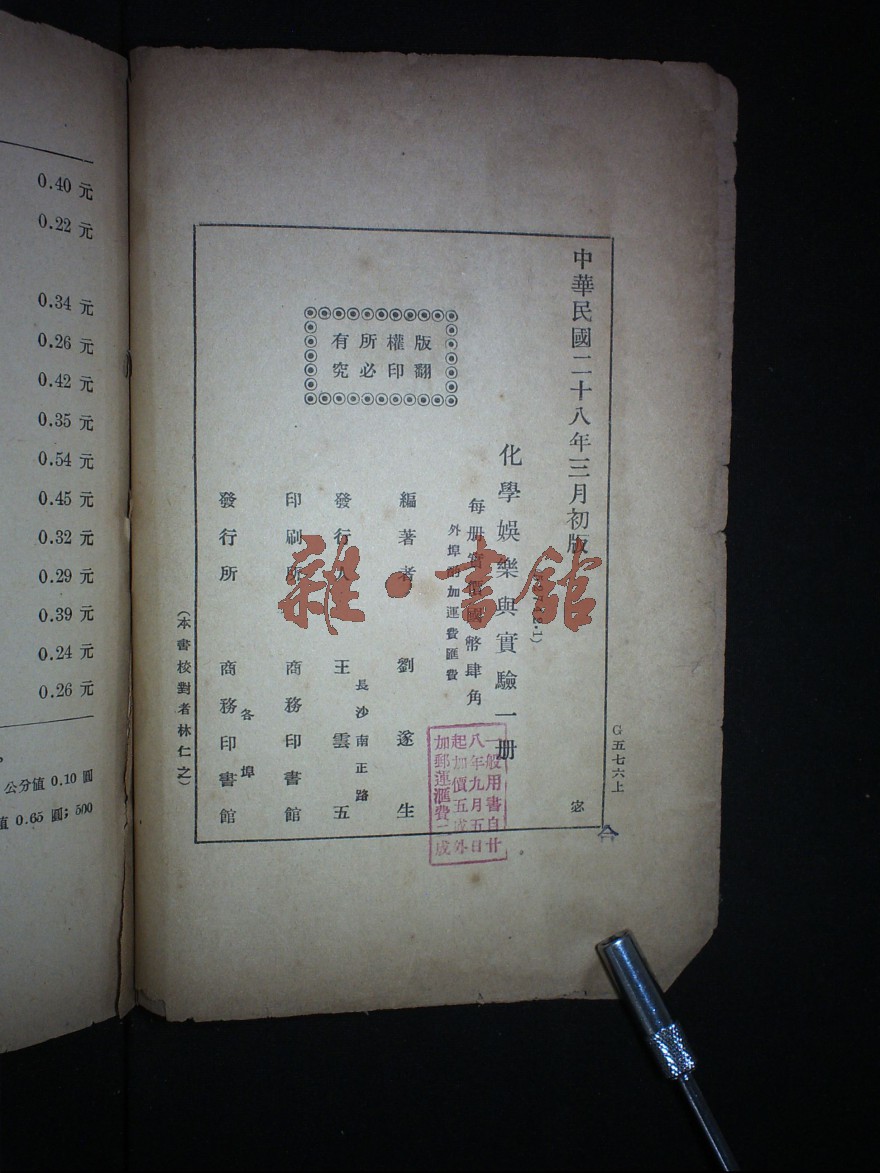 中華民國二十八年三月初版
化學娛樂與實驗一册
每册實價國幣肆角
外埠酌加運費匯費
版權所有
翻印必究
編著者 劉遂生
發行人 王雲五
長沙南正路
印刷所 商務印書館
發行所 商務印書館
各埠
(本書校對者林仁之)
G五七六上
宓
一般用書自廿
八年九月五日
起加價五成外
加郵運滙費二成
雜·書館
0.40 元
0.22 元
0.34 元
0.26 元
0.42 元
0.35 元
0.54 元
0.45 元
0.32 元
0.29 元
0.39 元
0.24 元
0.26 元
公分值 0.10 圓
值 0.65 圓; 500